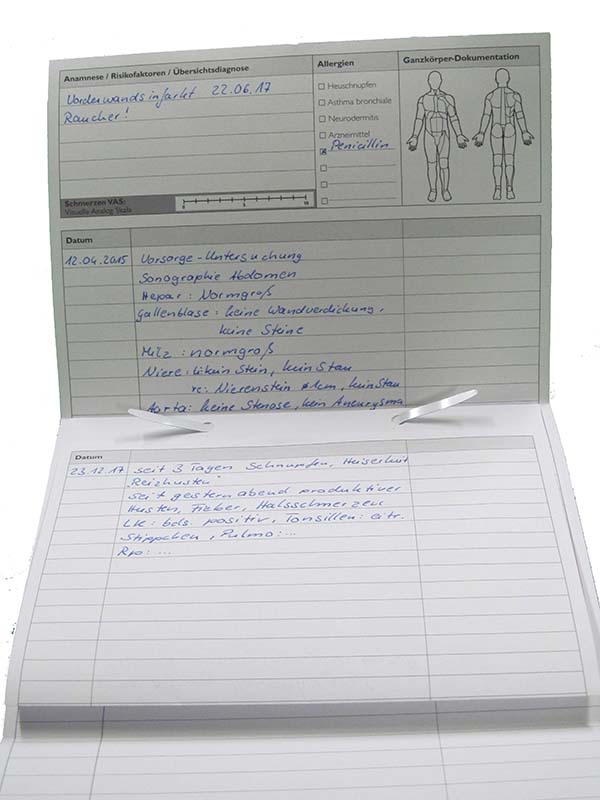 Anamnese / Risikofaktoren / Übersichtsdiagnose
Vorderwandsinfarkt 22.06.17
Raucher!
Schmerzen VAS:
Visuelle Analog Skala
0 5 10
Allergien
Heuschnupfen
Asthma bronchiale
Neurodermitis
Arzneimittel
Penicillin
Ganzkörper-Dokumentation
Datum
12.04.2015 Vorsorge-Untersuchung
Sonographie Abdomen
Hepar: Normgroß
Gallenblase: keine Wandverdickung,
keine Steine
Milz: normgroß
Niere: li kein Stein, kein Stau
re: Nierenstein ø 1cm, kein Stau
Aorta: keine Stenose, kein Aneurysma
Datum
23.12.17 seit 3 Tagen Schnupfen, Heiserkeit
"Reizhusten"
seit gestern abend produktiver
Husten, Fieber, Halsschmerzen
Lk: bds. positiv, Tonsillen: eitr.
Stippchen, Pulmo: ...
Rp: ...